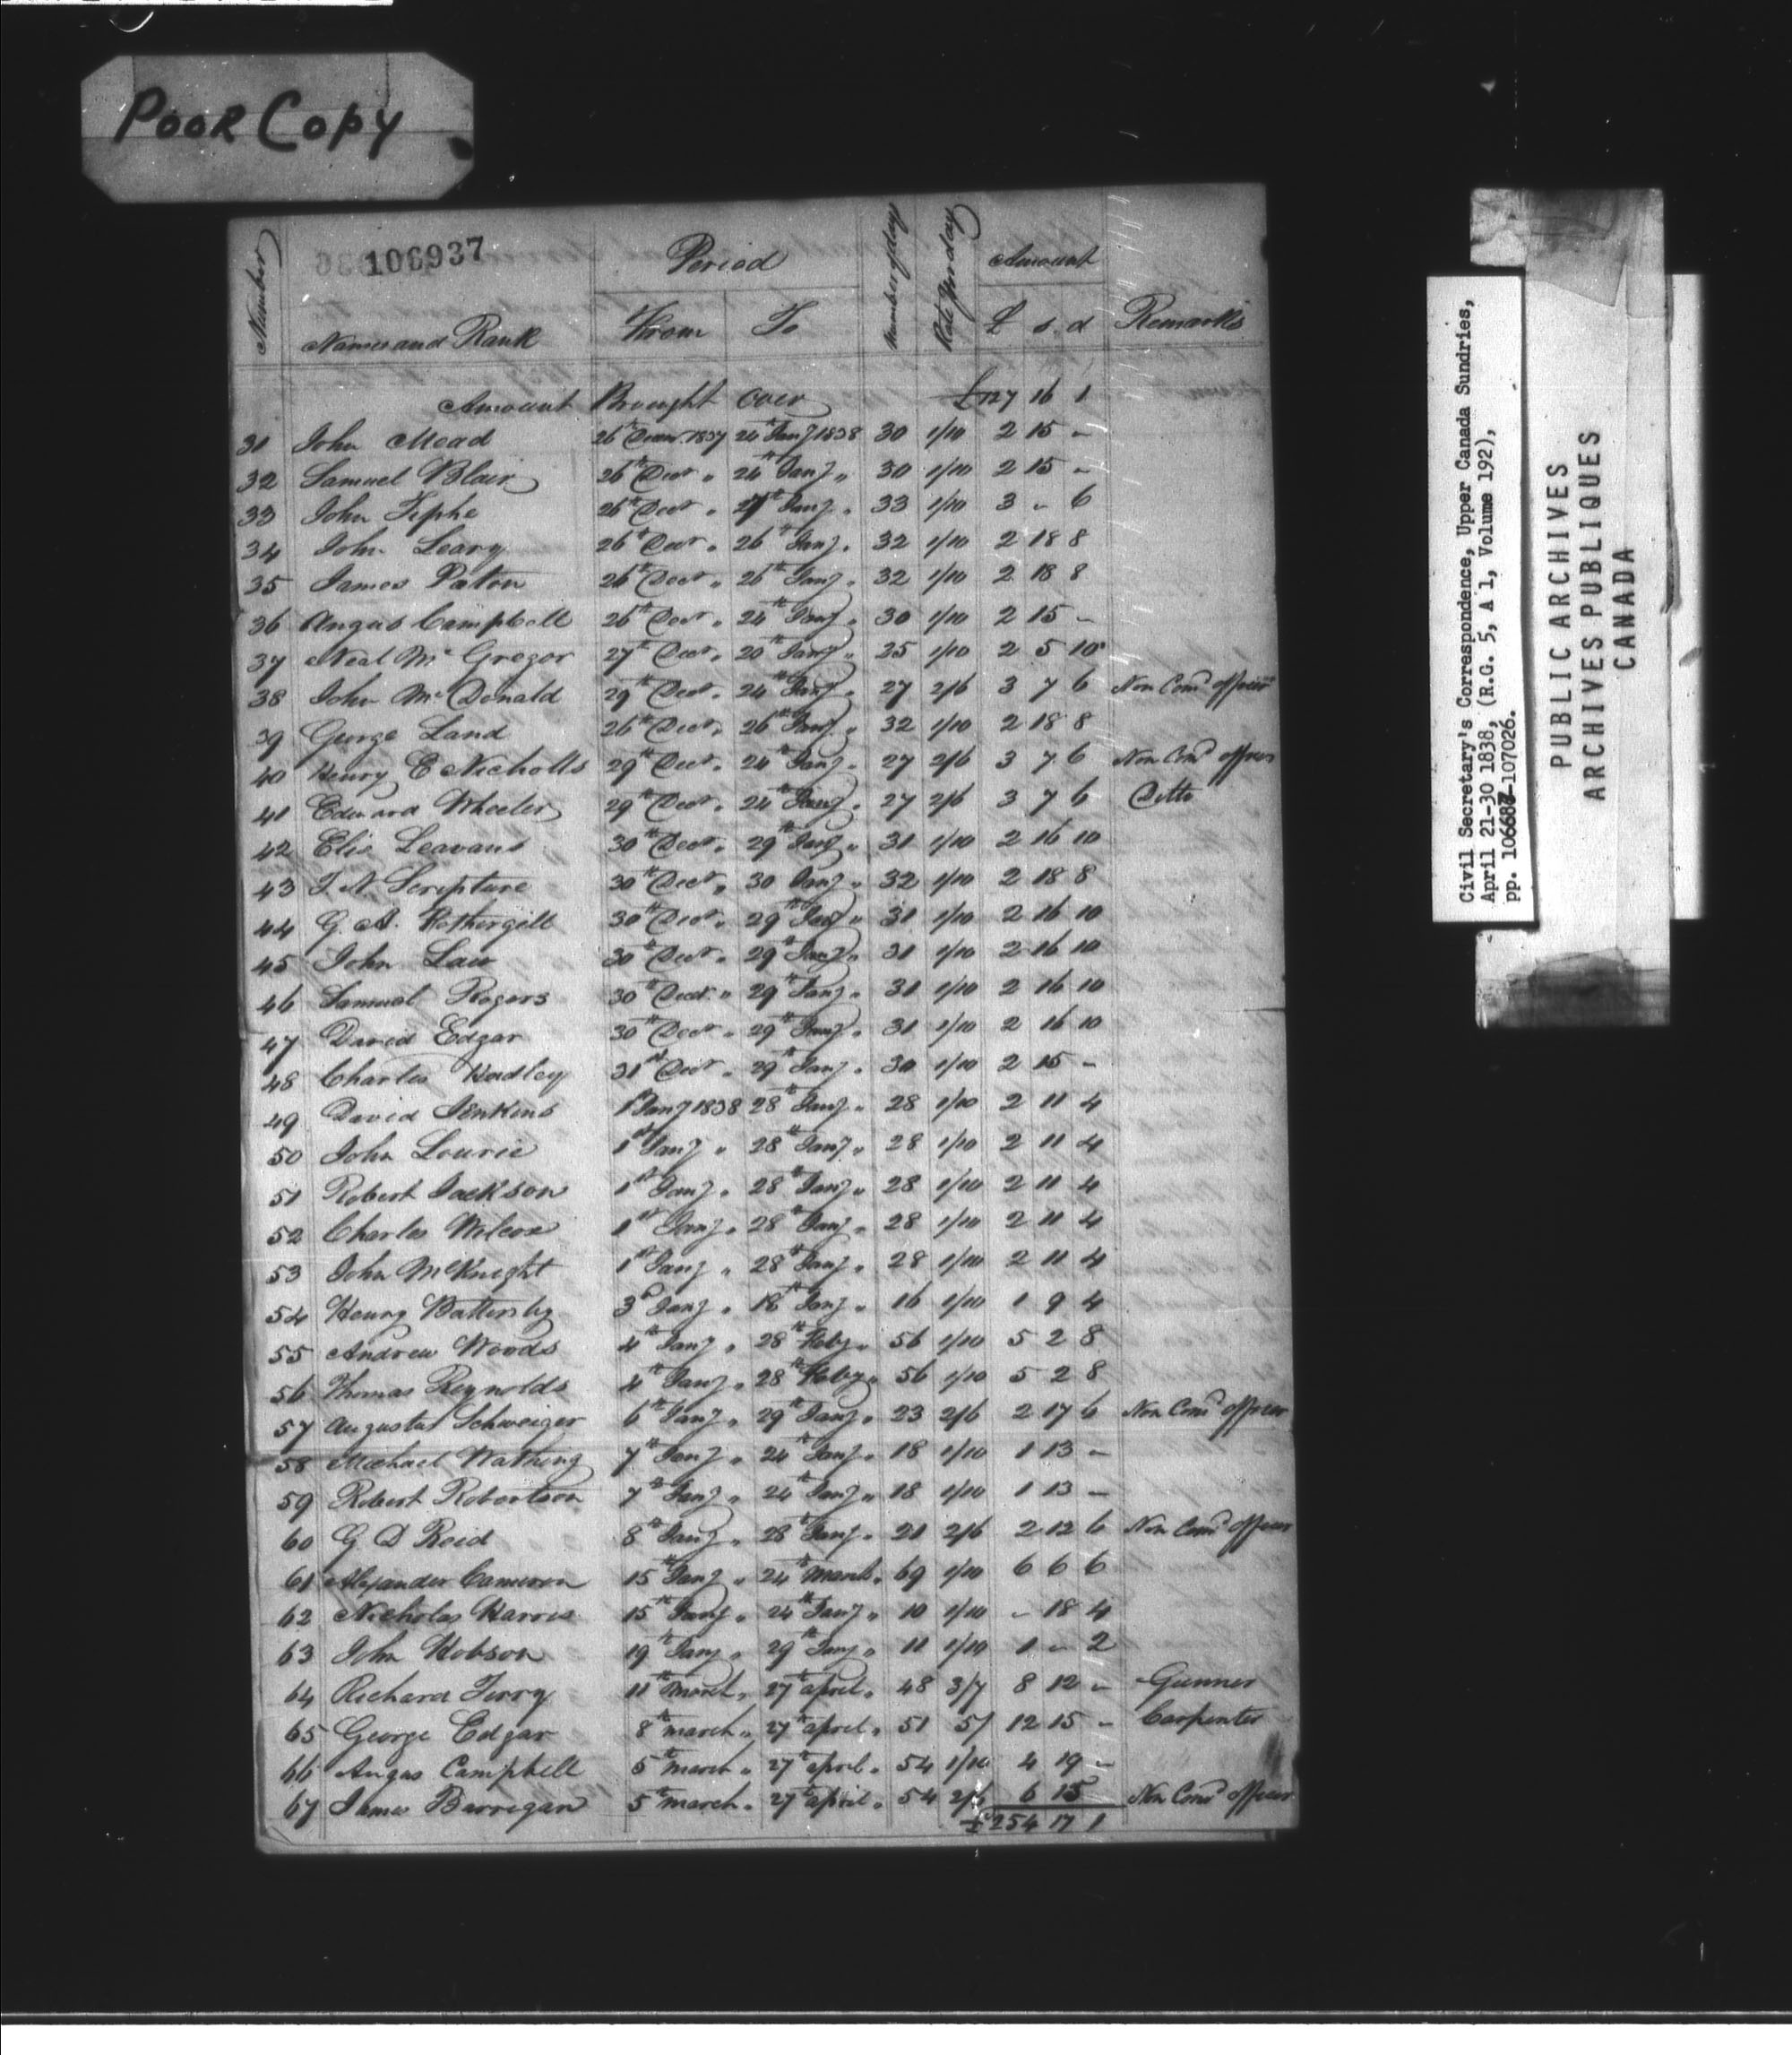 Poor Copy
106937
Number
Names and Rank
Period
From
To
Number of days
Rate per day
Amount
£ s. d
Remarks
Amount Brought Over £127 16 1
31 John Mead 26th Decemr. 1837 24th Jany 1838 30 1/10 2 15 -
32 Samuel Blair 26th Decr " 24th Jany " 30 1/10 2 15 -
33 John 26th Decr " 27th Jany " 33 1/10 3 - 6
34 John Leary 26th Decr " 26th Jany " 32 1/10 2 18 8
35 James Paton 26th Decr " 26th Jany " 32 1/10 2 18 8
36 Angus Campbell 26th Decr " 24th Jany " 30 1/10 2 15 -
37 Neal Mc Gregor 27th Decr " 20th Jany " 25 1/10 2 5 10
38 John Mc Donald 29th Decr " 24th Jany " 27 2/6 3 7 6 Non Comd officer
39 George Land 26th Decr " 26th Jany " 32 1/10 2 18 8
40 Henry E Nicholls 29th Decr " 24th Jany " 27 2/6 3 7 6 Non Comd officer
41 Edward Wheeler 29th Decr " 24th Jany " 27 2/6 3 7 6 Ditto
42 Elie Leavans 30th Decr " 29th Jany " 31 1/10 2 16 10
43 T N Scripture 30th Decr " 30 Jany " 32 1/10 2 18 8
44 G. A. Fothergill 30th Decr " 29th Jany " 31 1/10 2 16 10
45 John Law 30th Decr " 29th Jany " 31 1/10 2 16 10
46 Samuel Rogers 30th Decr " 29th Jany " 31 1/10 2 16 10
47 David Edgar 30th Decr " 29th Jany " 31 1/10 2 16 10
48 Charles Hadley 31st Decr " 29th Jany " 30 1/10 2 15 -
49 David Jenkins 1st Jany 1838 28th Jany " 28 1/10 2 11 4
50 John Lourie 1st Jany " 28th Jany " 28 1/10 2 11 4
51 Robert Jackson 1st Jany " 28th Jany " 28 1/10 2 11 4
52 Charles Wilcox 1st Jany " 28th Jany " 28 1/10 2 11 4
53 John McKnight 1st Jany " 28th Jany " 28 1/10 2 11 4
54 Henry Battersby 3d Jany " 18th Jany " 16 1/10 1 9 4
55 Andrew Woods 4th Jany " 28th Feby " 56 1/10 5 2 8
56 Thomas Reynolds 4th Jany " 28th Feby " 56 1/10 5 2 8
57 Augustus Schweiger 6th Jany " 29th Jany " 23 2/6 2 17 6 Non Comd officer
58 Michael Wathing 7th Jany " 24th Jany " 18 1/10 1 13 -
59 Robert Robertson 7th Jany " 24th Jany " 18 1/10 1 13 -
60 G D Reid 8th Jany " 28th Jany " 21 2/6 2 12 6 Non Comd officer
61 Alexander Cameron 15th Jany " 24th March " 69 1/10 6 6 6
62 Nicholas Harris 15th Jany " 24th Jany " 10 1/10 - 18 4
63 John Hobson 19th Jany " 29th Jany " 11 1/10 1 - 2
64 Richard Terry 11th March " 27th april " 48 3/7 8 12 - Gunner
65 George Edgar 8th march " 27th april " 51 5/ 12 15 - Carpenter
66 Angus Campbell 5th march " 27th april " 54 1/10 4 19 -
67 James Barregan 5th march " 27th april " 54 2/6 6 15 Non Comd officer
£254 17 1
Civil Secretary's Correspondence, Upper Canada Sundries,
April 21-30 1838, (R.G. 5, A 1, Volume 192),
pp. 106687-107026.
PUBLIC ARCHIVES
ARCHIVES PUBLIQUES
CANADA